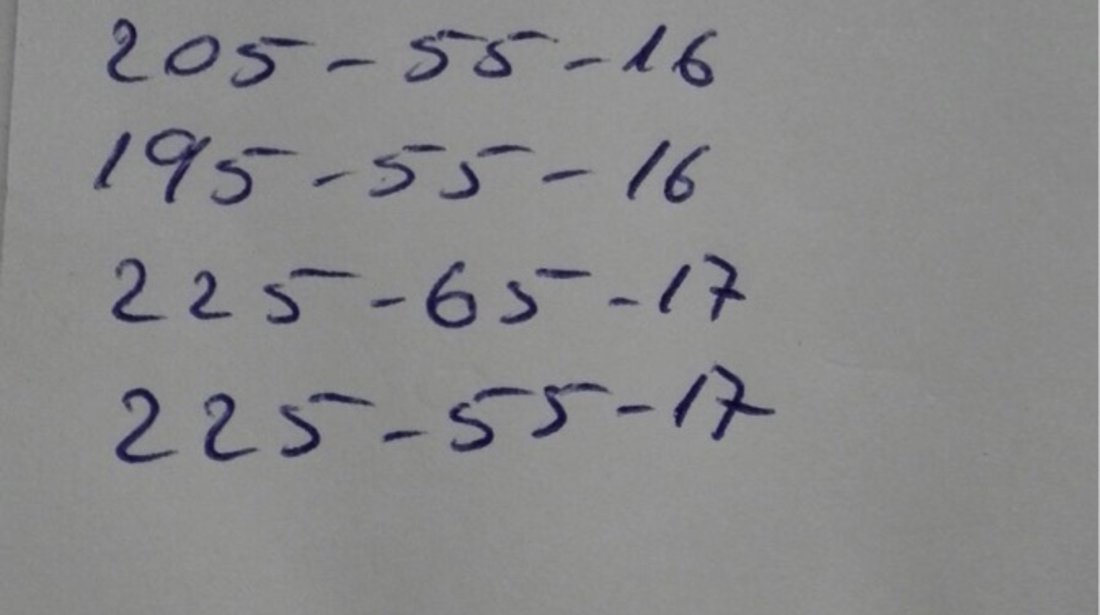 205-55-16
195-55-16
225-65-17
225-55-17